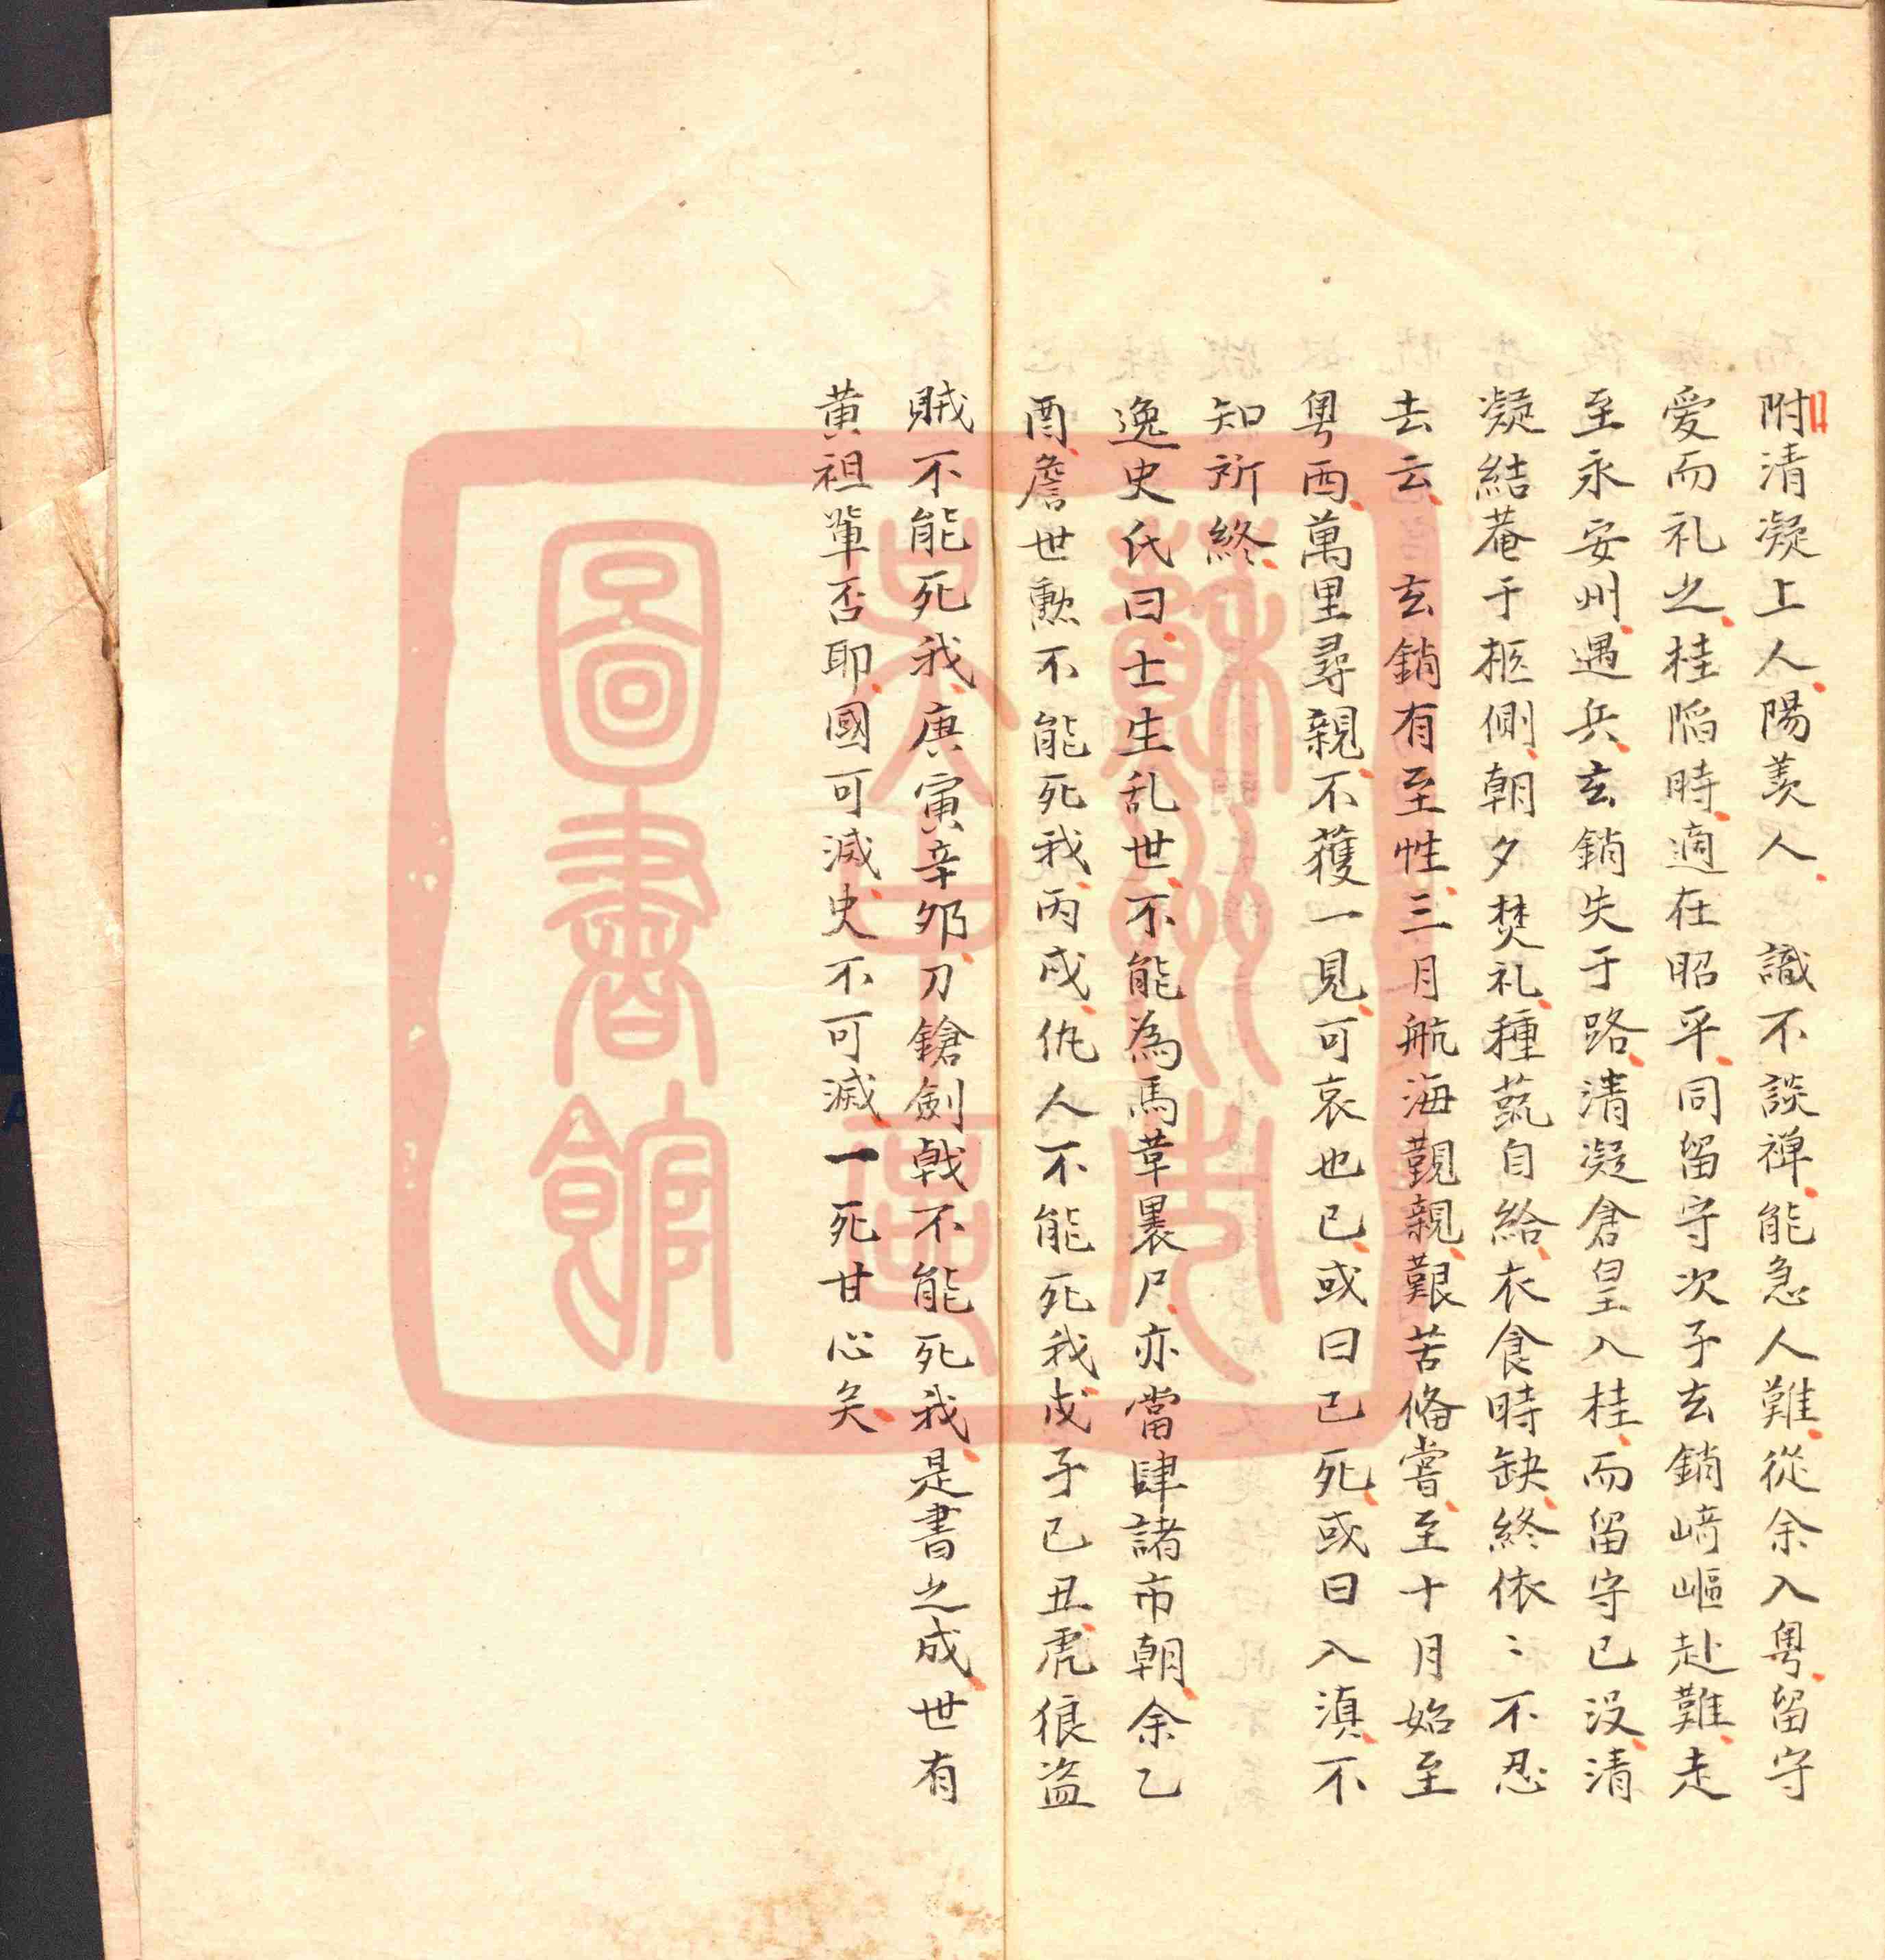 附清凝上人陽羨人　識不談禪能急人難從余入粤留守
爱而礼之桂陷時適在昭平同留守次子玄銷崎嶇赴難走
至永安州遇兵玄銷失于路清凝倉皇入桂而留守已没清
凝結菴于柩側朝夕焚礼種蓏自給衣食時缺終依〻不忍
去云　玄銷有至性三月航海觐親艱苦俻嘗至十月始至
粤西萬里尋親不獲一見可哀也已或曰已死或曰入滇不
知所終
逸史氏曰士生乱世不能為馬革裹尸亦當肆諸市朝余乙
酉詹世勲不能死我丙戌仇人不能死我戊子己丑虎狼盗
賊不能死我庚寅辛夘刀鎗劍戟不能死我是書之成世有
黄祖輩否耶國可滅史不可滅一死甘心矣
蘇州市
圖書館